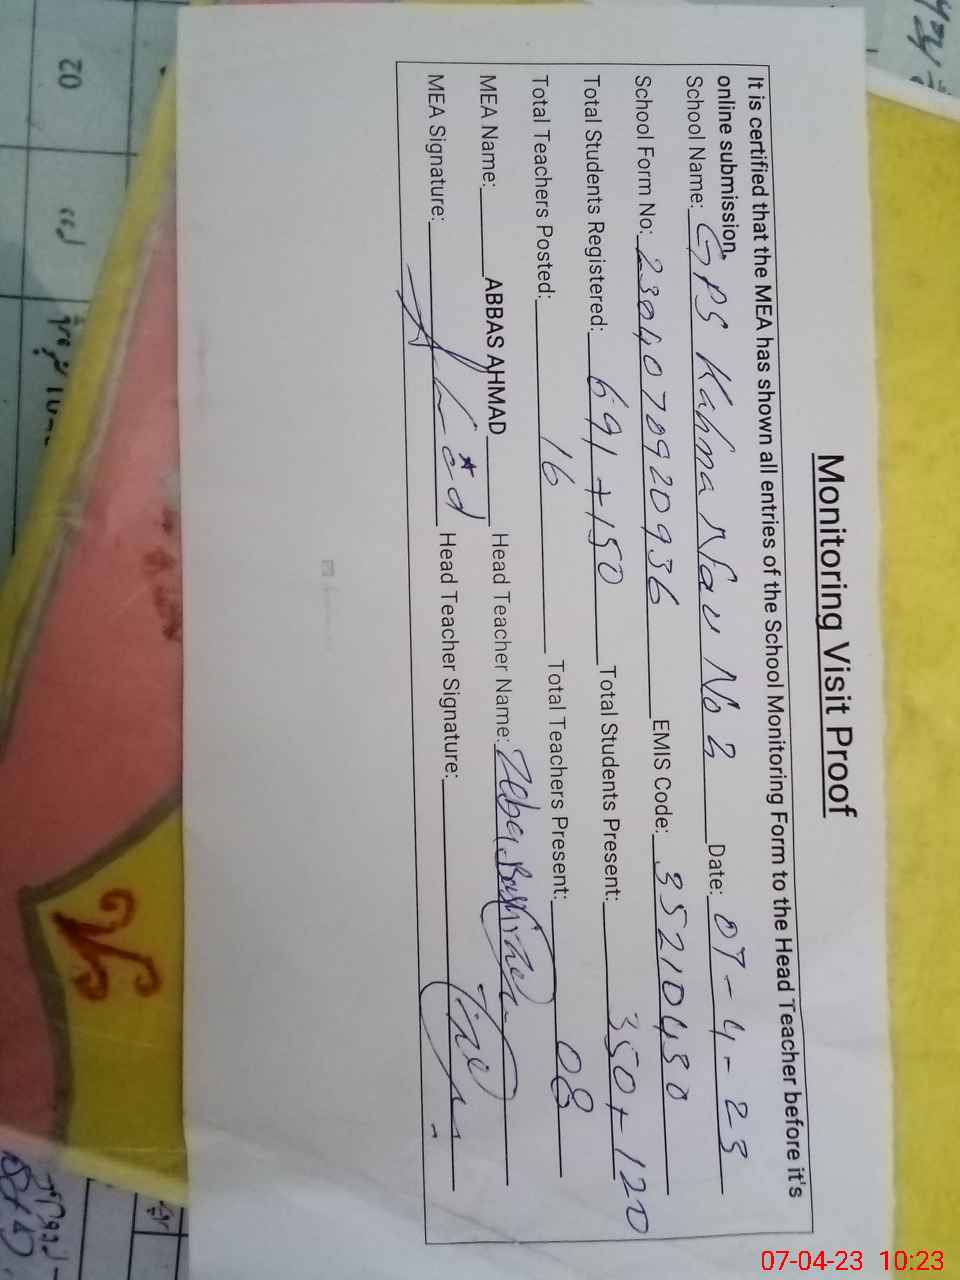 Monitoring Visit Proof
It is certified that the MEA has shown all entries of the School Monitoring Form to the Head Teacher before it's
online submission.
School Name: GPS Kahna Nau No 2 Date: 07-4-23
School Form No: 2304070920936 EMIS Code: 35210430
Total Students Registered: 691+150 Total Students Present: 350+120
Total Teachers Posted: 16 Total Teachers Present: 08
MEA Name: ABBAS AHMAD Head Teacher Name: Zeba
MEA Signature: Head Teacher Signature:
20
07-04-23 10:23